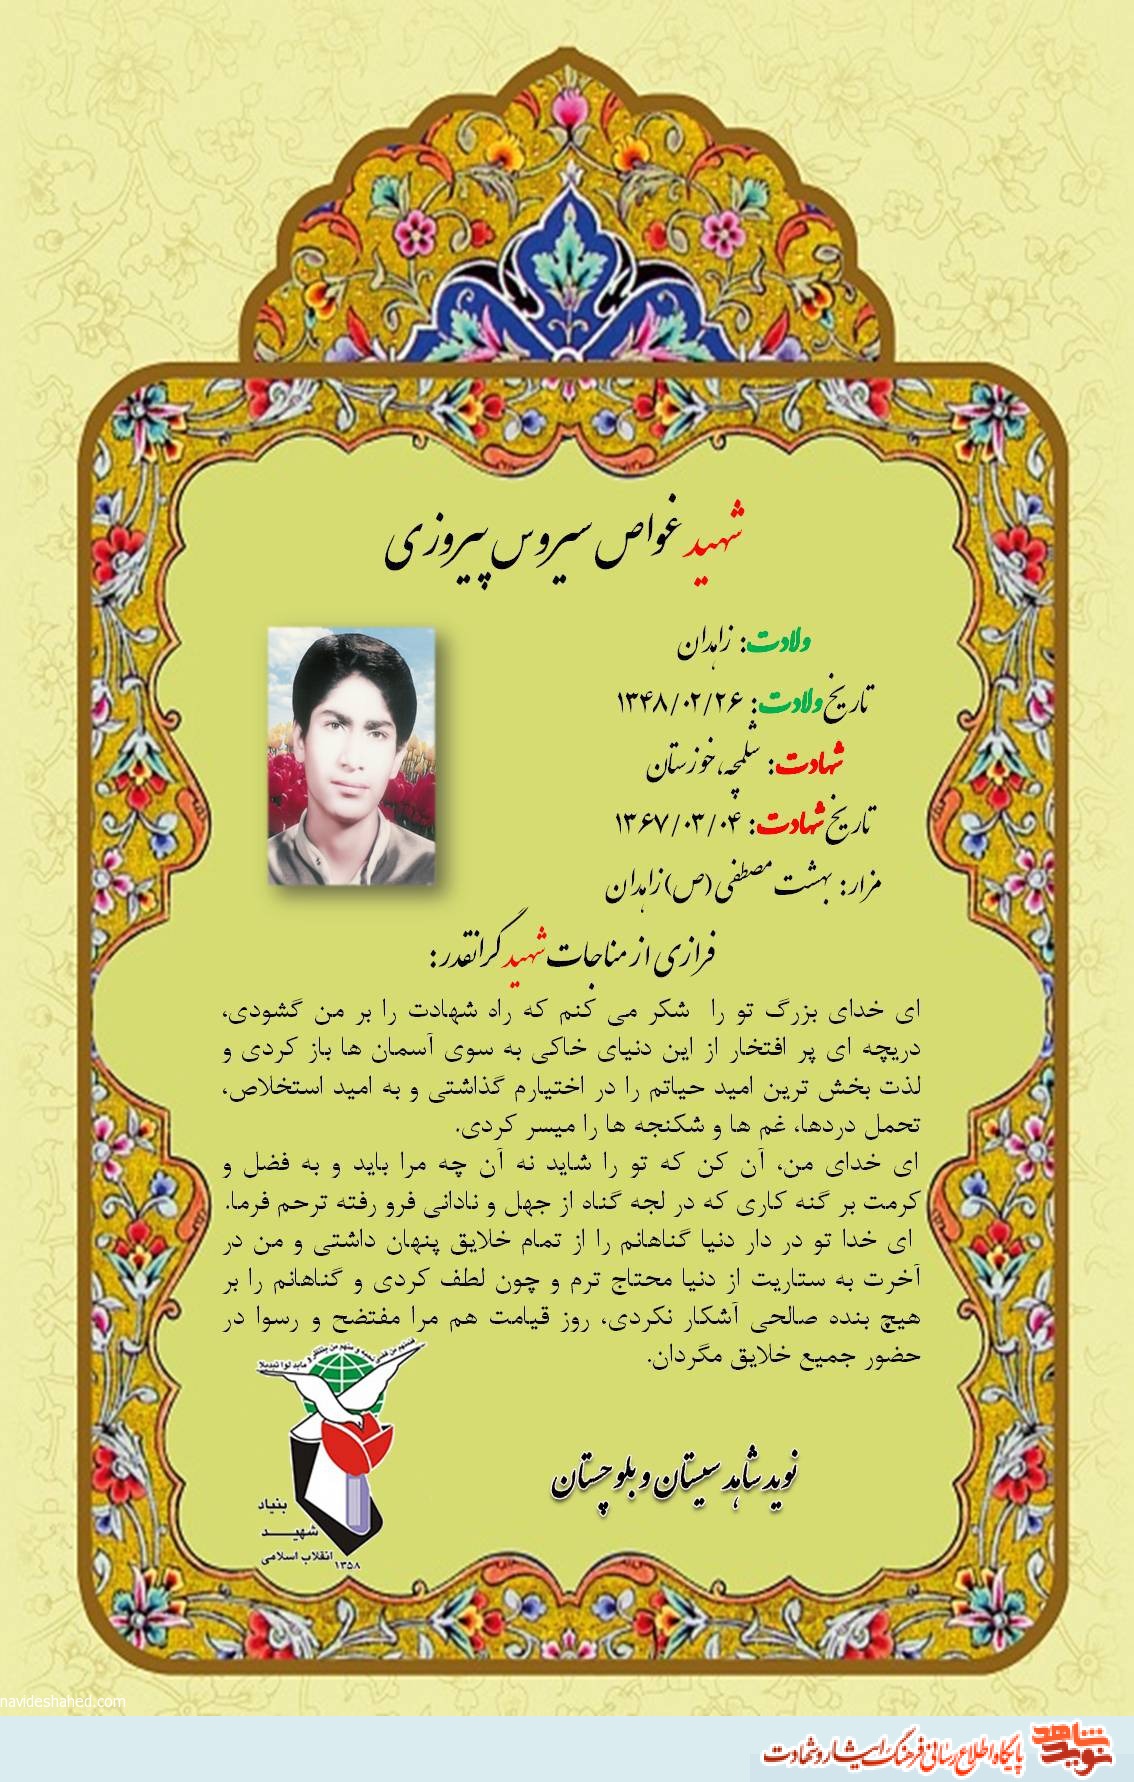 شهید غواص سیروس پیروزی
ولادت: زاهدان
تاریخ ولادت: ۱۳۴۸/۰۲/۲۶
شهادت: شلمچه، خوزستان
تاریخ شهادت: ۱۳۶۷/۰۳/۰۴
مزار: بهشت مصطفی (ص) زاهدان
فرازی از مناجات شهید گرانقدر:
ای خدای بزرگ تو را شکر می کنم که راه شهادت را بر من گشودی،
دریچه ای پر افتخار از این دنیای خاکی به سوی آسمان ها باز کردی و
لذت بخش ترین امید حیاتم را در اختیارم گذاشتی و به امید استخلاص،
تحمل دردها، غم ها و شکنجه ها را میسر کردی.
ای خدای من، آن کن که تو را شاید نه آن چه مرا باید و به فضل و
کرمت بر گنه کاری که در لجه گناه از جهل و نادانی فرو رفته ترحم فرما.
ای خدا تو در دار دنیا گناهانم را از تمام خلایق پنهان داشتی و من در
آخرت به ستاریت از دنیا محتاج ترم و چون لطف کردی و گناهانم را بر
هیچ بنده صالحی آشکار نکردی، روز قیامت هم مرا مفتضح و رسوا در
حضور جمیع خلایق مگردان.
فمنهم من قضی نحبه و منهم من ینتظر و ما بدلوا تبدیلا
نوید شاهد سیستان و بلوچستان
بنیاد
شهید
انقلاب اسلامی
۱۳۵۸
navideshahed.com
نوید شاهد
پایگاه اطلاع رسانی فرهنگ ایثار و شهادت